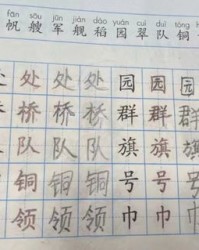 fān sōu jūn jiàn dào yuán cuì duì tóng
帆 艘 军 舰 稻 园 翠 队 铜
处 处 处 处 园 园 园
桥 桥 桥 群 群 群
队 队 队 旗 旗 旗
铜 铜 铜 号 号 号
领 领 领 巾 巾 巾